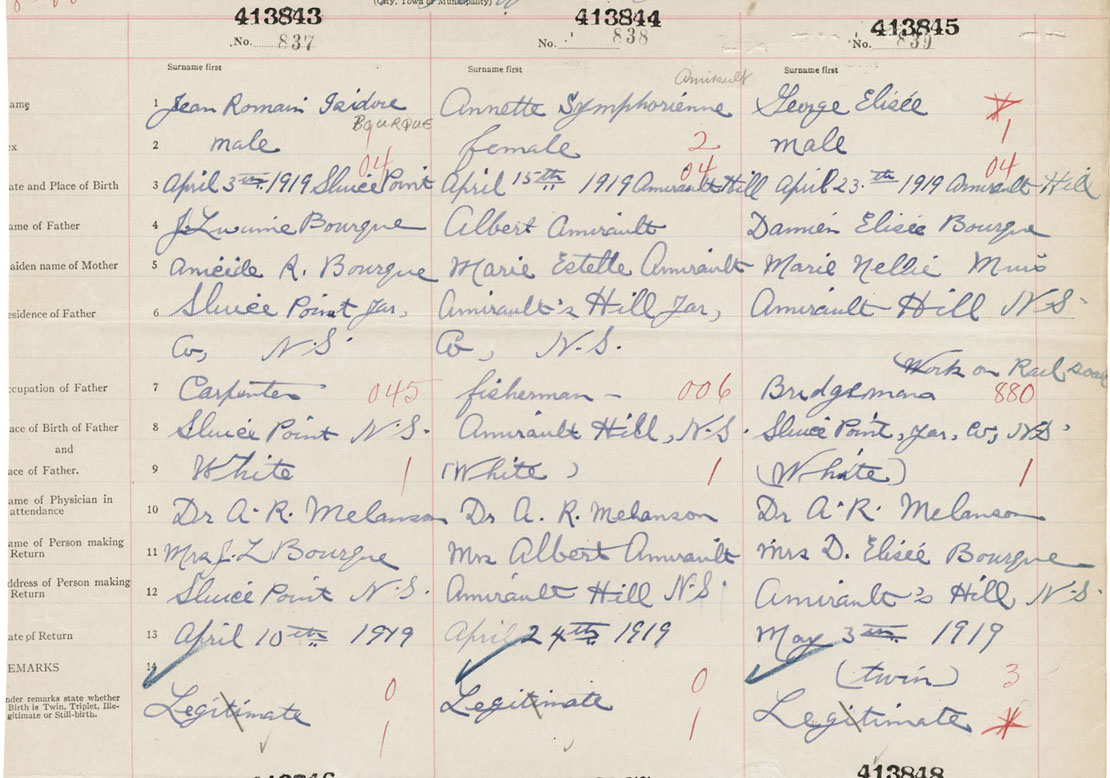 (City, Town or Municipality)
413843 413844 413845
No. 837 No. 838 No. 839
Surname first Surname first Surname first
Amirault
ame 1 Jean Romain Isidore Annette Symphorienne George Elisée
BOURQUE 1
ex 2 male female 2 male
04 04 04
ate and Place of Birth 3 April 3th 1919 Sluice Point April 15th 1919 Amirault Hill April 23th 1919 Amirault Hill
ame of Father 4 Bourque Albert Amirault Damién Elisée Bourque
aiden name of Mother 5 R. Bourque Marie Estelle Amirault Marie Nellie Muis
esidence of Father 6 Sluice Point Yar, Amirault's Hill Yar, Amirault Hill N-S
Co, N.S. Co, N.S.
Work on Rail road
ccupation of Father 7 Carpenter 045 fisherman - 006 880
lace of Birth of Father 8 Sluice Point N.S. Amirault Hill, N.S. Sluice Point, Yar, Co, N.S.
and
ace of Father. 9 White 1 (White) 1 (White) 1
ame of Physician in
attendance 10 Dr A. R. Melanson Dr A. R. Melanson Dr A. R. Melanson
ame of Person making
Return 11 Mrs J. L Bourque Mrs Albert Amirault Mrs D. Elisée Bourque
ddress of Person making
Return 12 Sluice Point N.S. Amirault Hill N.S. Amirault's Hill, N.S.
ate of Return 13 April 10th 1919 April 24th 1919 May 3th 1919
EMARKS 14 (twin) 3
nder remarks state whether
Birth is Twin, Triplet, Ille-
gitimate or Still-birth.
Legitimate 0 Legitimate 0 Legitimate
1 1
413848